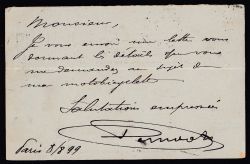 Monsieur,
Je vous envoi une lettre vous
donnant les détails que vous
me demandez au sujet de
ma motobicyclette
Salutations empressées
Paris 8/8 99